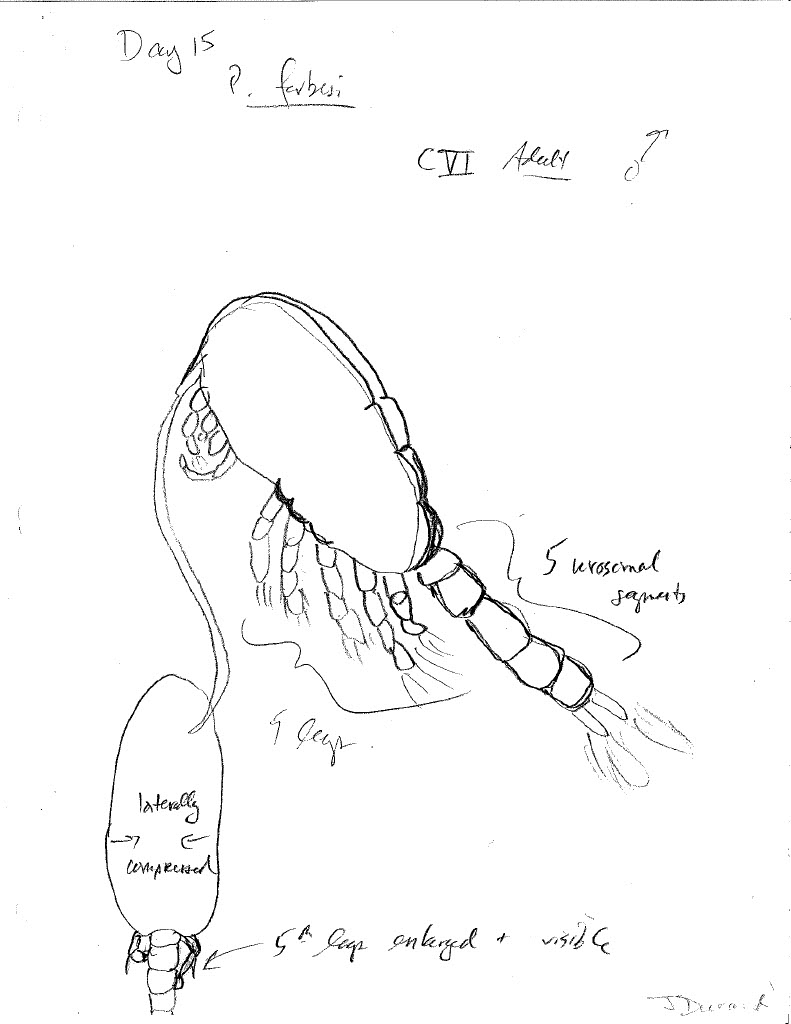 Day 15
P. forbesi
CVI Adult ♂
5 urosomal
segments
5 legs.
laterally
→ ←
compressed
5th legs enlarged + visible